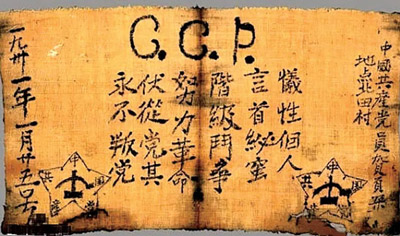 C.C.P.
中國共産党員賀
地点北田村
犠性個人
言首秘蜜
階級鬥争
努力革命
伏從党其
永不叛党
一九卅一年一月廿五